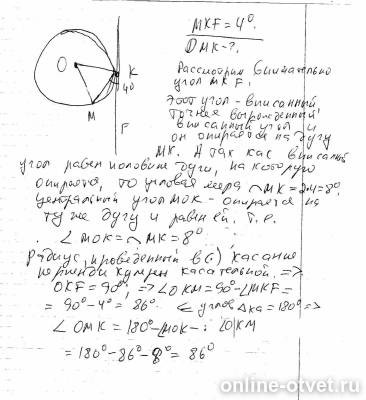 MKF = 4°.
OMK - ?.
O
K
4°
M
F
Рассмотрим внимательно
угол MKF.
Этот угол - вписанный,
точнее вырожденный
вписанный угол и
он опирается на дугу
MK. А так как вписанный
угол равен половине дуги, на которую
опирается, то угловая мера ◠MK = 2·4 = 8°.
Центральный угол MOK - опирается на
ту же дугу и равен ей. Т.е.
∠MOK = ◠MK = 8°
Радиус, проведенный в (·) касания
перпендикулярен касательной. =>
OKF = 90°, => ∠OKM = 90° - ∠MKF =
= 90° - 4° = 86°. Σ углов Δка = 180° =>
∠OMK = 180° - ∠MOK - ∠OKM
= 180° - 86° - 8° = 86°
online-otvet.ru